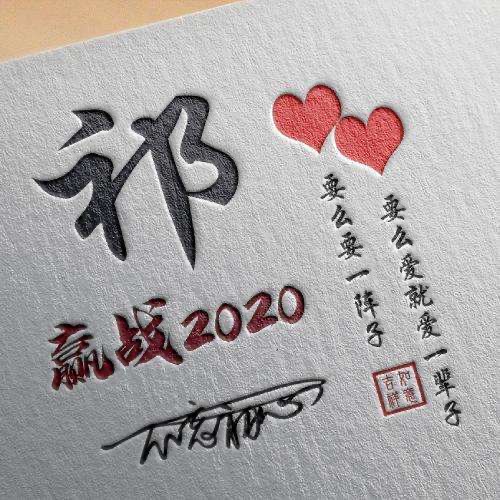 祁
赢战2020
要么爱就爱一辈子
要么要一阵子
如意
吉祥